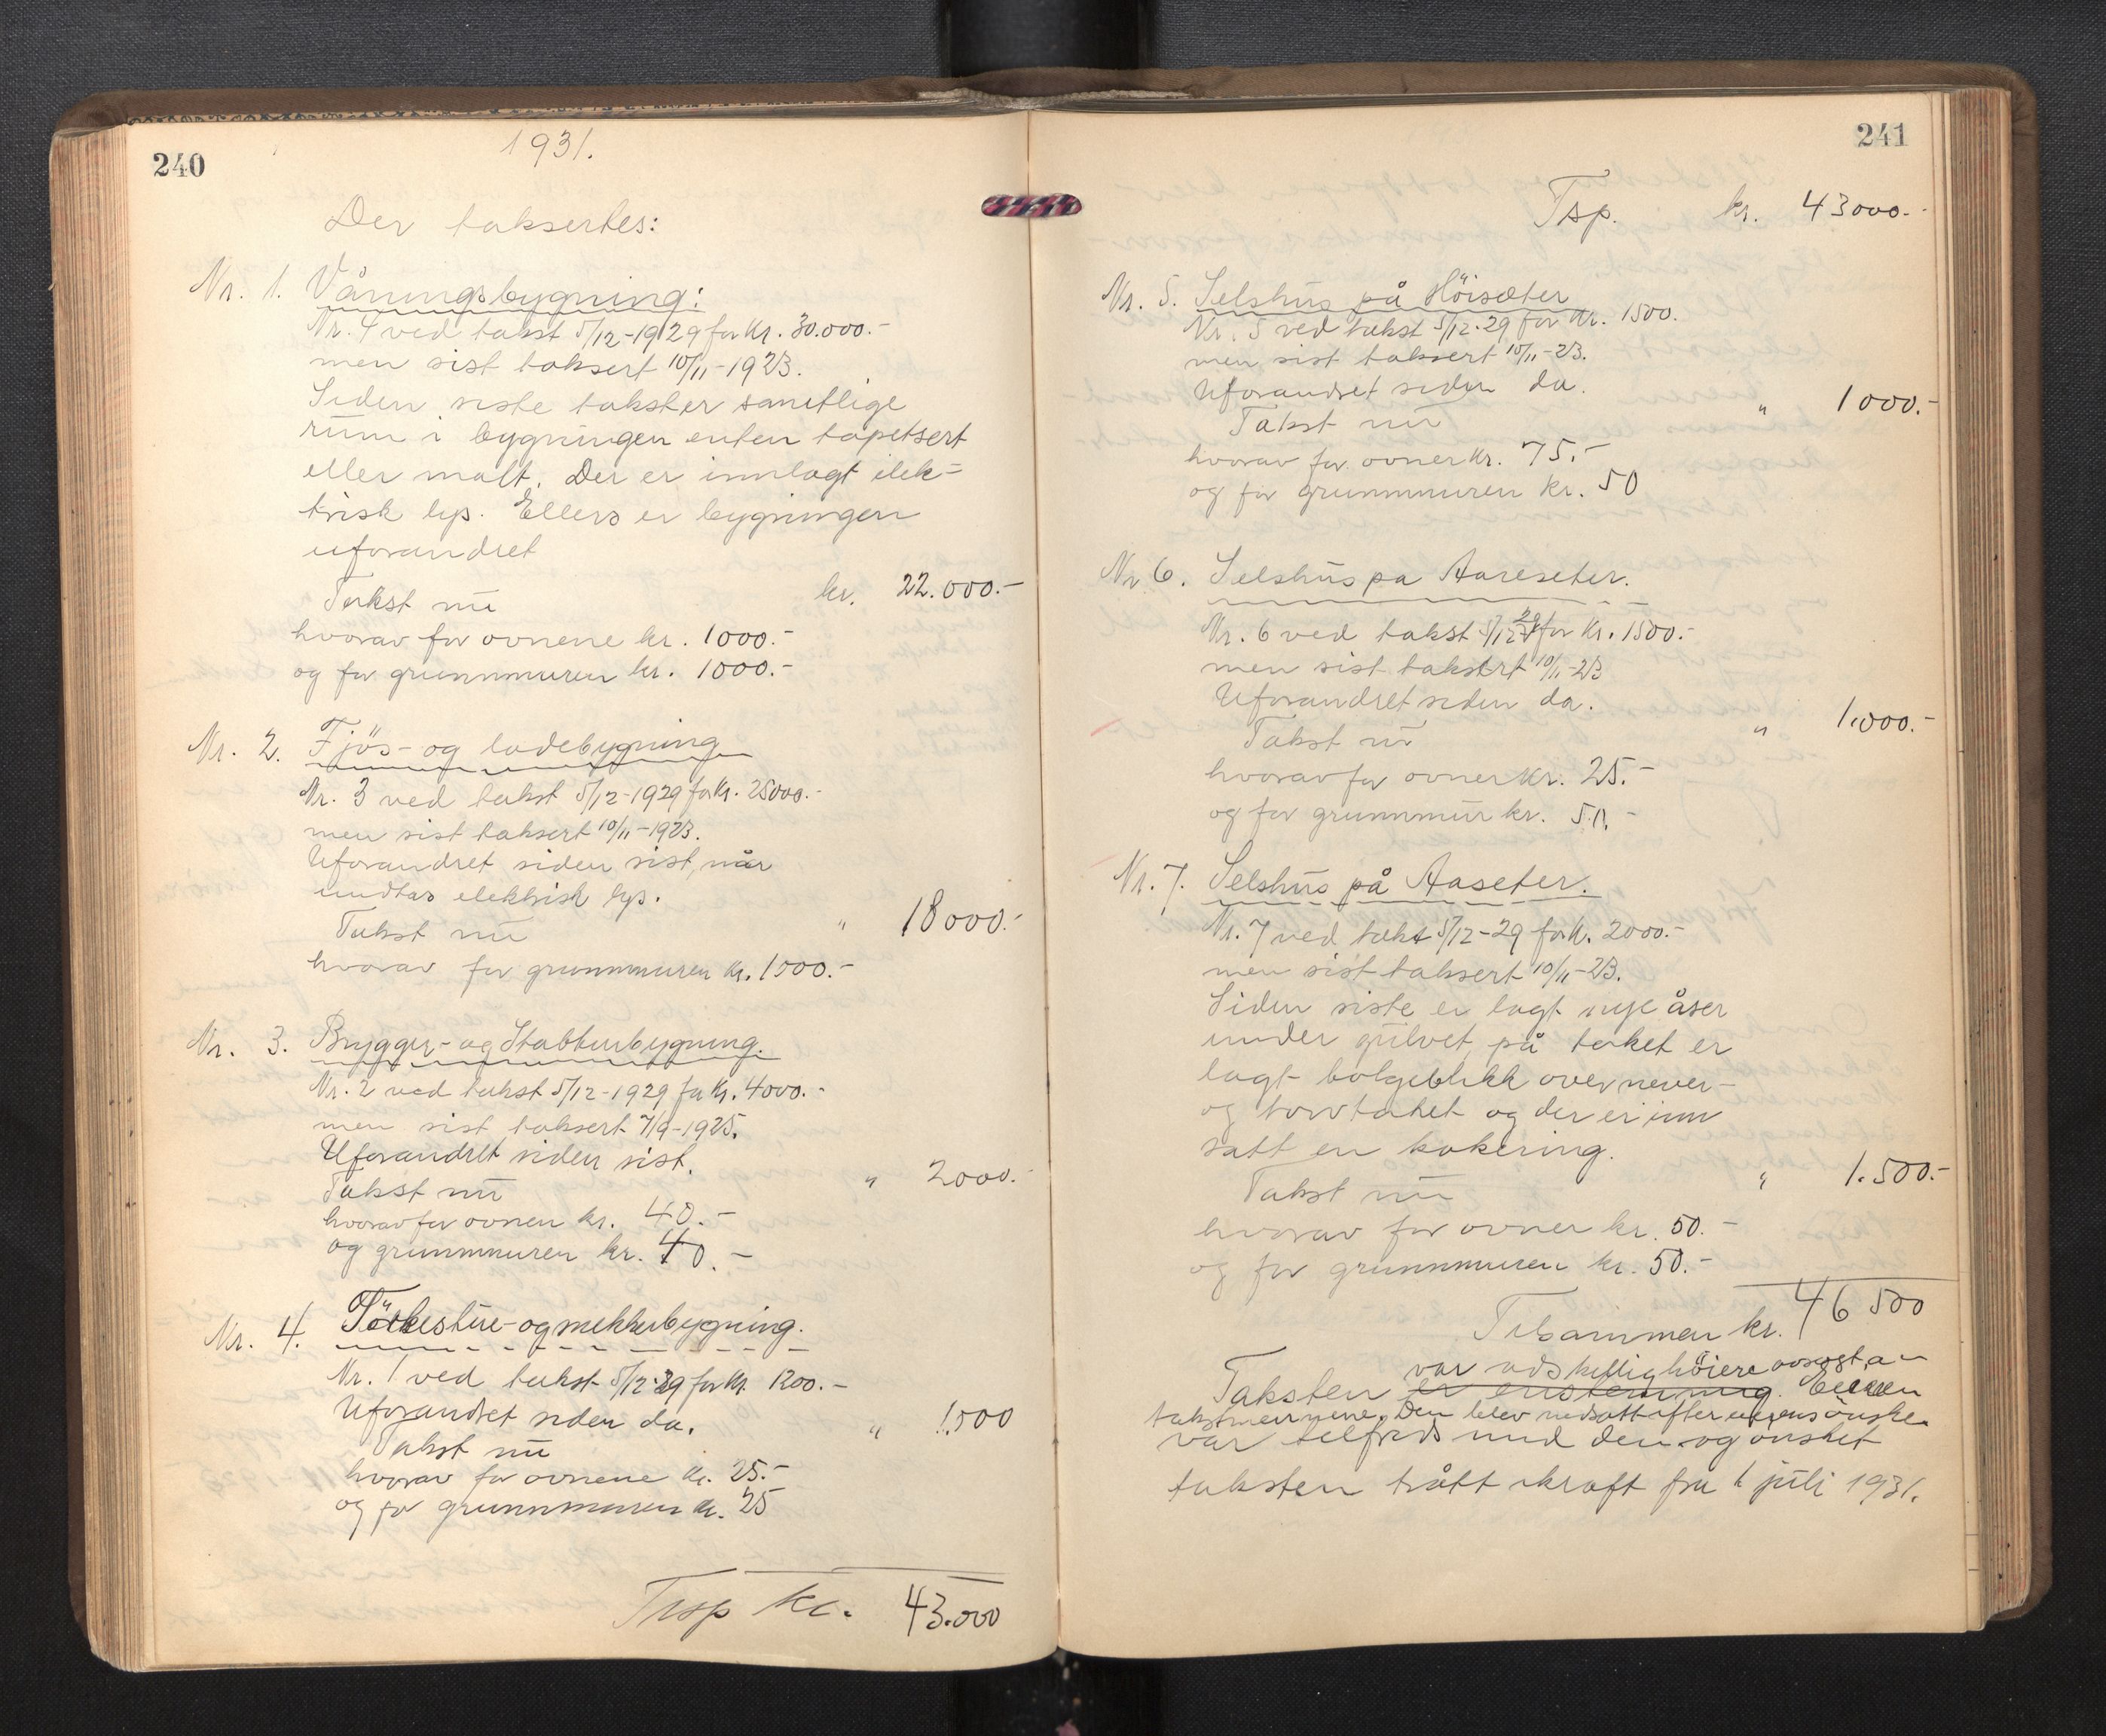 240
1931.
Der taksertes:
Nr. 1. Våningsbygning:
Nr. 4 ved takst 5/12-1929 for kr. 30.000.-
men sist taksert 10/11-1923.
Siden siste takst er samtlige
rum i bygningen enten tapetsert
eller malt. Der er innlagt elek-
trisk lys. Ellers er bygningen
uforandret
Takst nu kr. 22.000.-
hvorav for ovnene kr. 1000.-
og for grunnmuren kr. 1000.-
Nr. 2. Fjös- og ladebygning
Nr. 3 ved takst 5/12-1929 for kr. 25000.-
men sist taksert 10/11-1923.
Uforandret siden sist, når
undtas elektrisk lys.
Takst nu " 18000.-
hvorav for grunnmuren kr. 1500.-
Nr. 3. Brygger- og Stabburbygning.
Nr. 2 ved takst 5/12-1929 for kr. 4000.-
men sist taksert 7/9-1925.
Uforandret siden sist.
Takst nu " 2000.-
hvorav for ovnen kr. 40.-
og grunnmuren kr. 40.-
Nr. 4. Törkestue- og mekkerbygning.
Nr. 1 ved takst 5/12-29 for kr. 1200.-
Uforandret siden da.
Takst nu " 1.500
hvorav for ovnene kr. 25.-
og for grunnmuren kr. 25
Tisp kr. 43.000
241
Tsp. kr. 43000.-
Nr. 5. Selshus på Höisæter
Nr. 5 ved takst 5/12-29 for kr. 1500.
men sist taksert 10/11-23.
Uforandret siden da.
Takst nu " 1000.-
hvorav for ovner kr. 75.-
og for grunnmuren kr. 50
Nr. 6. Selshus pa Aareseter.
Nr. 6 ved takst 5/12 29 for kr. 1500.-
men sist taksert 10/11-23
Uforandret siden da.
Takst nu " 1.000.-
hvorav for ovner kr. 25.-
og for grunnmur kr. 50.-
Nr. 7. Selshus på Aaseter.
Nr. 7 ved takst 5/12-29 for kr. 2000.-
men sist taksert 10/11-23.
Siden siste er lagt nye åser
under gulvet, på taket er
lagt bølgeblikk over never-
og torvtaket og der er inn
satt en kokering.
Takst nu " 1.500.-
hvorav for ovner kr. 50.-
og for grunnmuren kr. 50.-
Tilsammen kr. 46 500
var adskillig höiere
Taksten er enstemmig. Eieren
takstmennene. Den blev nedsatt efter eierens önske.
var tilfreds med den og ønsket
taksten trått ikraft fra 1 juli 1931.